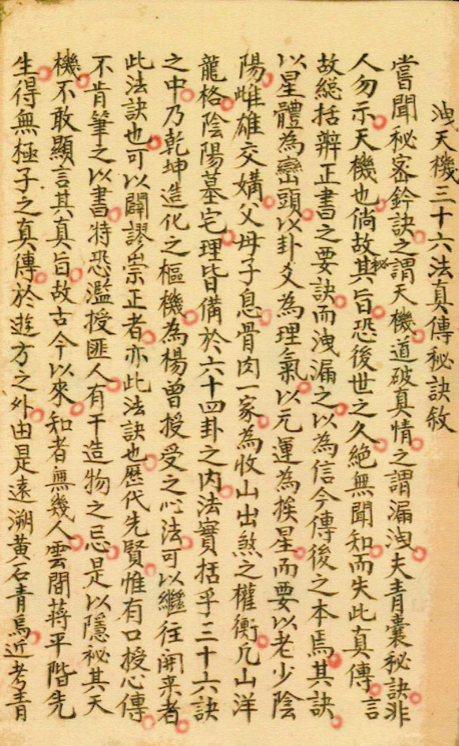 洩天機三十六法真傳秘訣敘
嘗聞秘密鈐訣之謂天機道破真情之謂漏洩夫青囊秘訣非
人勿示天機也倘故秘其旨恐後世之久絕無聞知而失此真傳言
故総括辨正書之要訣而洩漏之以為信今傳後之本焉其訣
以星體為巒頭以卦爻為理氣以元運為挨星而要以老少陰
陽雌雄交媾父母子息骨肉一家為收山出煞之權衡凡山洋
龍格陰陽墓宅理皆備於六十四卦之內法實括乎三十六訣
之中乃乾坤造化之樞機為楊曾授受之心法可以繼往開来者
此法訣也可以闢謬崇正者亦此法訣也歷代先賢惟有口授心傳
不肯筆之以書特恐濫授匪人有干造物之忌是以隱祕其天
機不敢顯言其真旨故古今以來知者無幾人雲間蔣平階先
生得無極子之真傳於遊方之外由是遠溯黃石青烏近考青